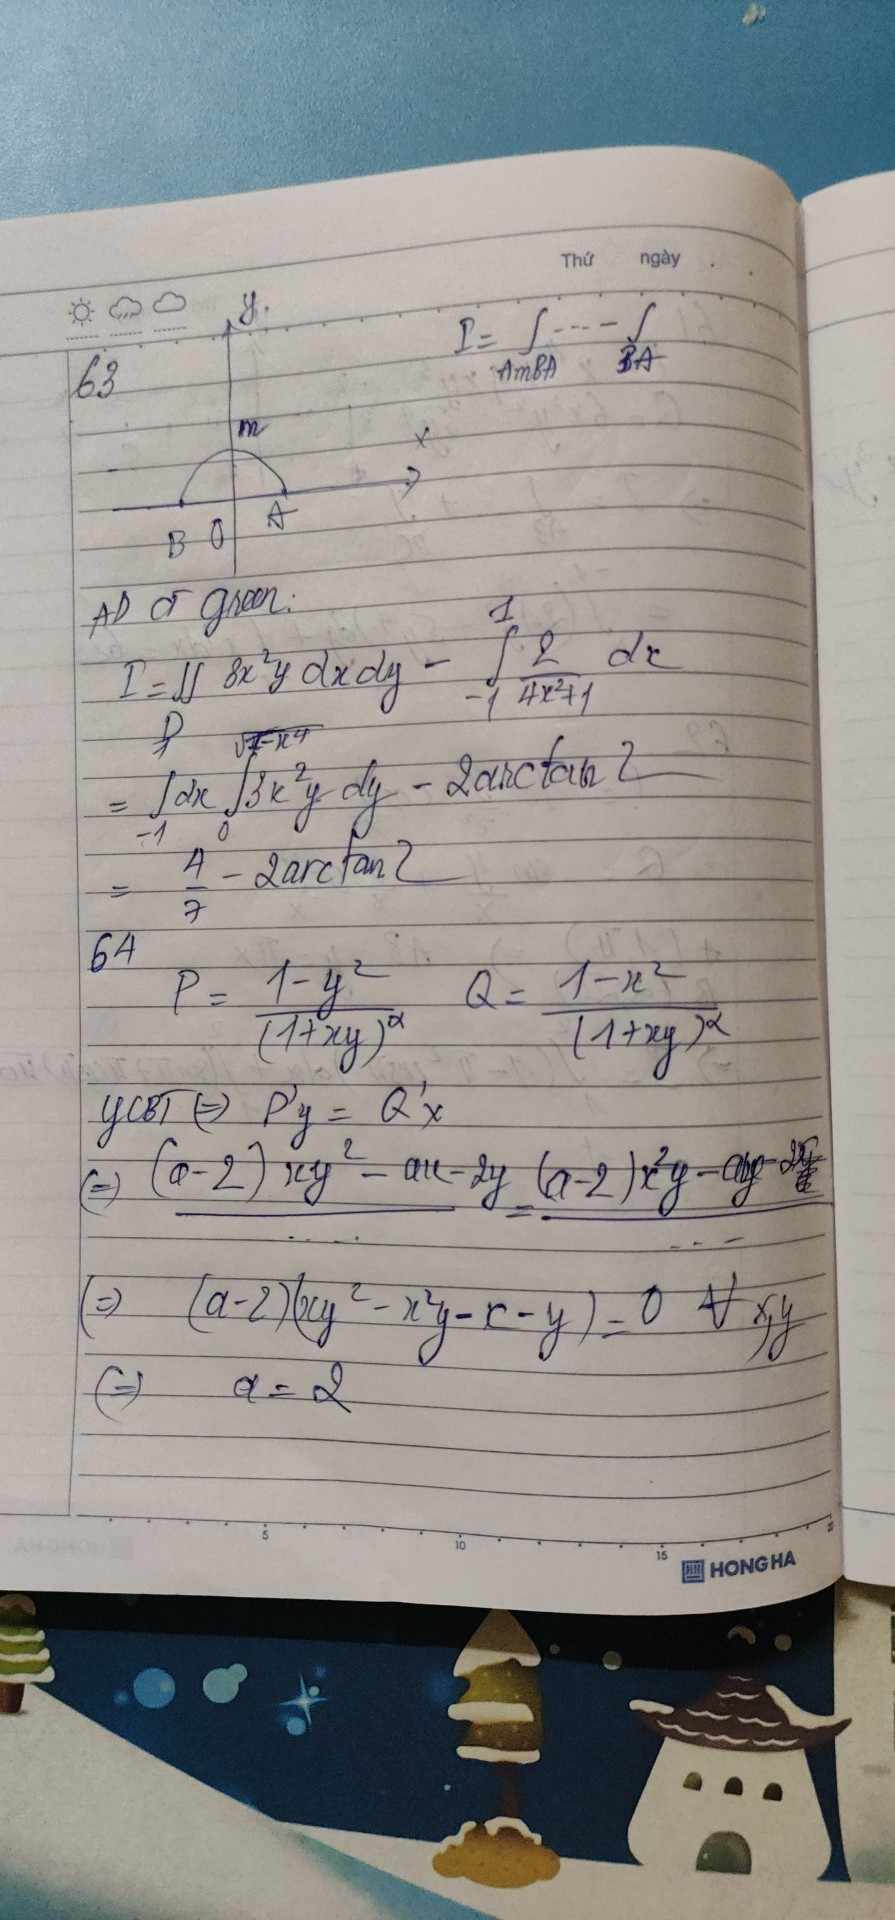 Thứ ngày
63
y
I = ∫ ... - ∫
AmBA BA
m
x
B O A
AD ct green:
I = ∬ 3x²y dxdy - ∫ 2/(4x²+1) dx
D -1 1
= ∫ dx ∫ 3x²y dy - 2arctan2
-1 1 0 √1-x⁴
= 4/7 - 2arctan2
64
P = (1-y²)/(1+xy)^α Q = (1-x²)/(1+xy)^α
YCBT (=) P'y = Q'x
(=) (a-2)xy² - ax - 2y = (a-2)x²y - ay - 2x
..... ...
(=) (a-2)(xy² - x²y - x - y) = 0 ∀ x,y
(=) a = 2
5 10 15 20
HONG HA